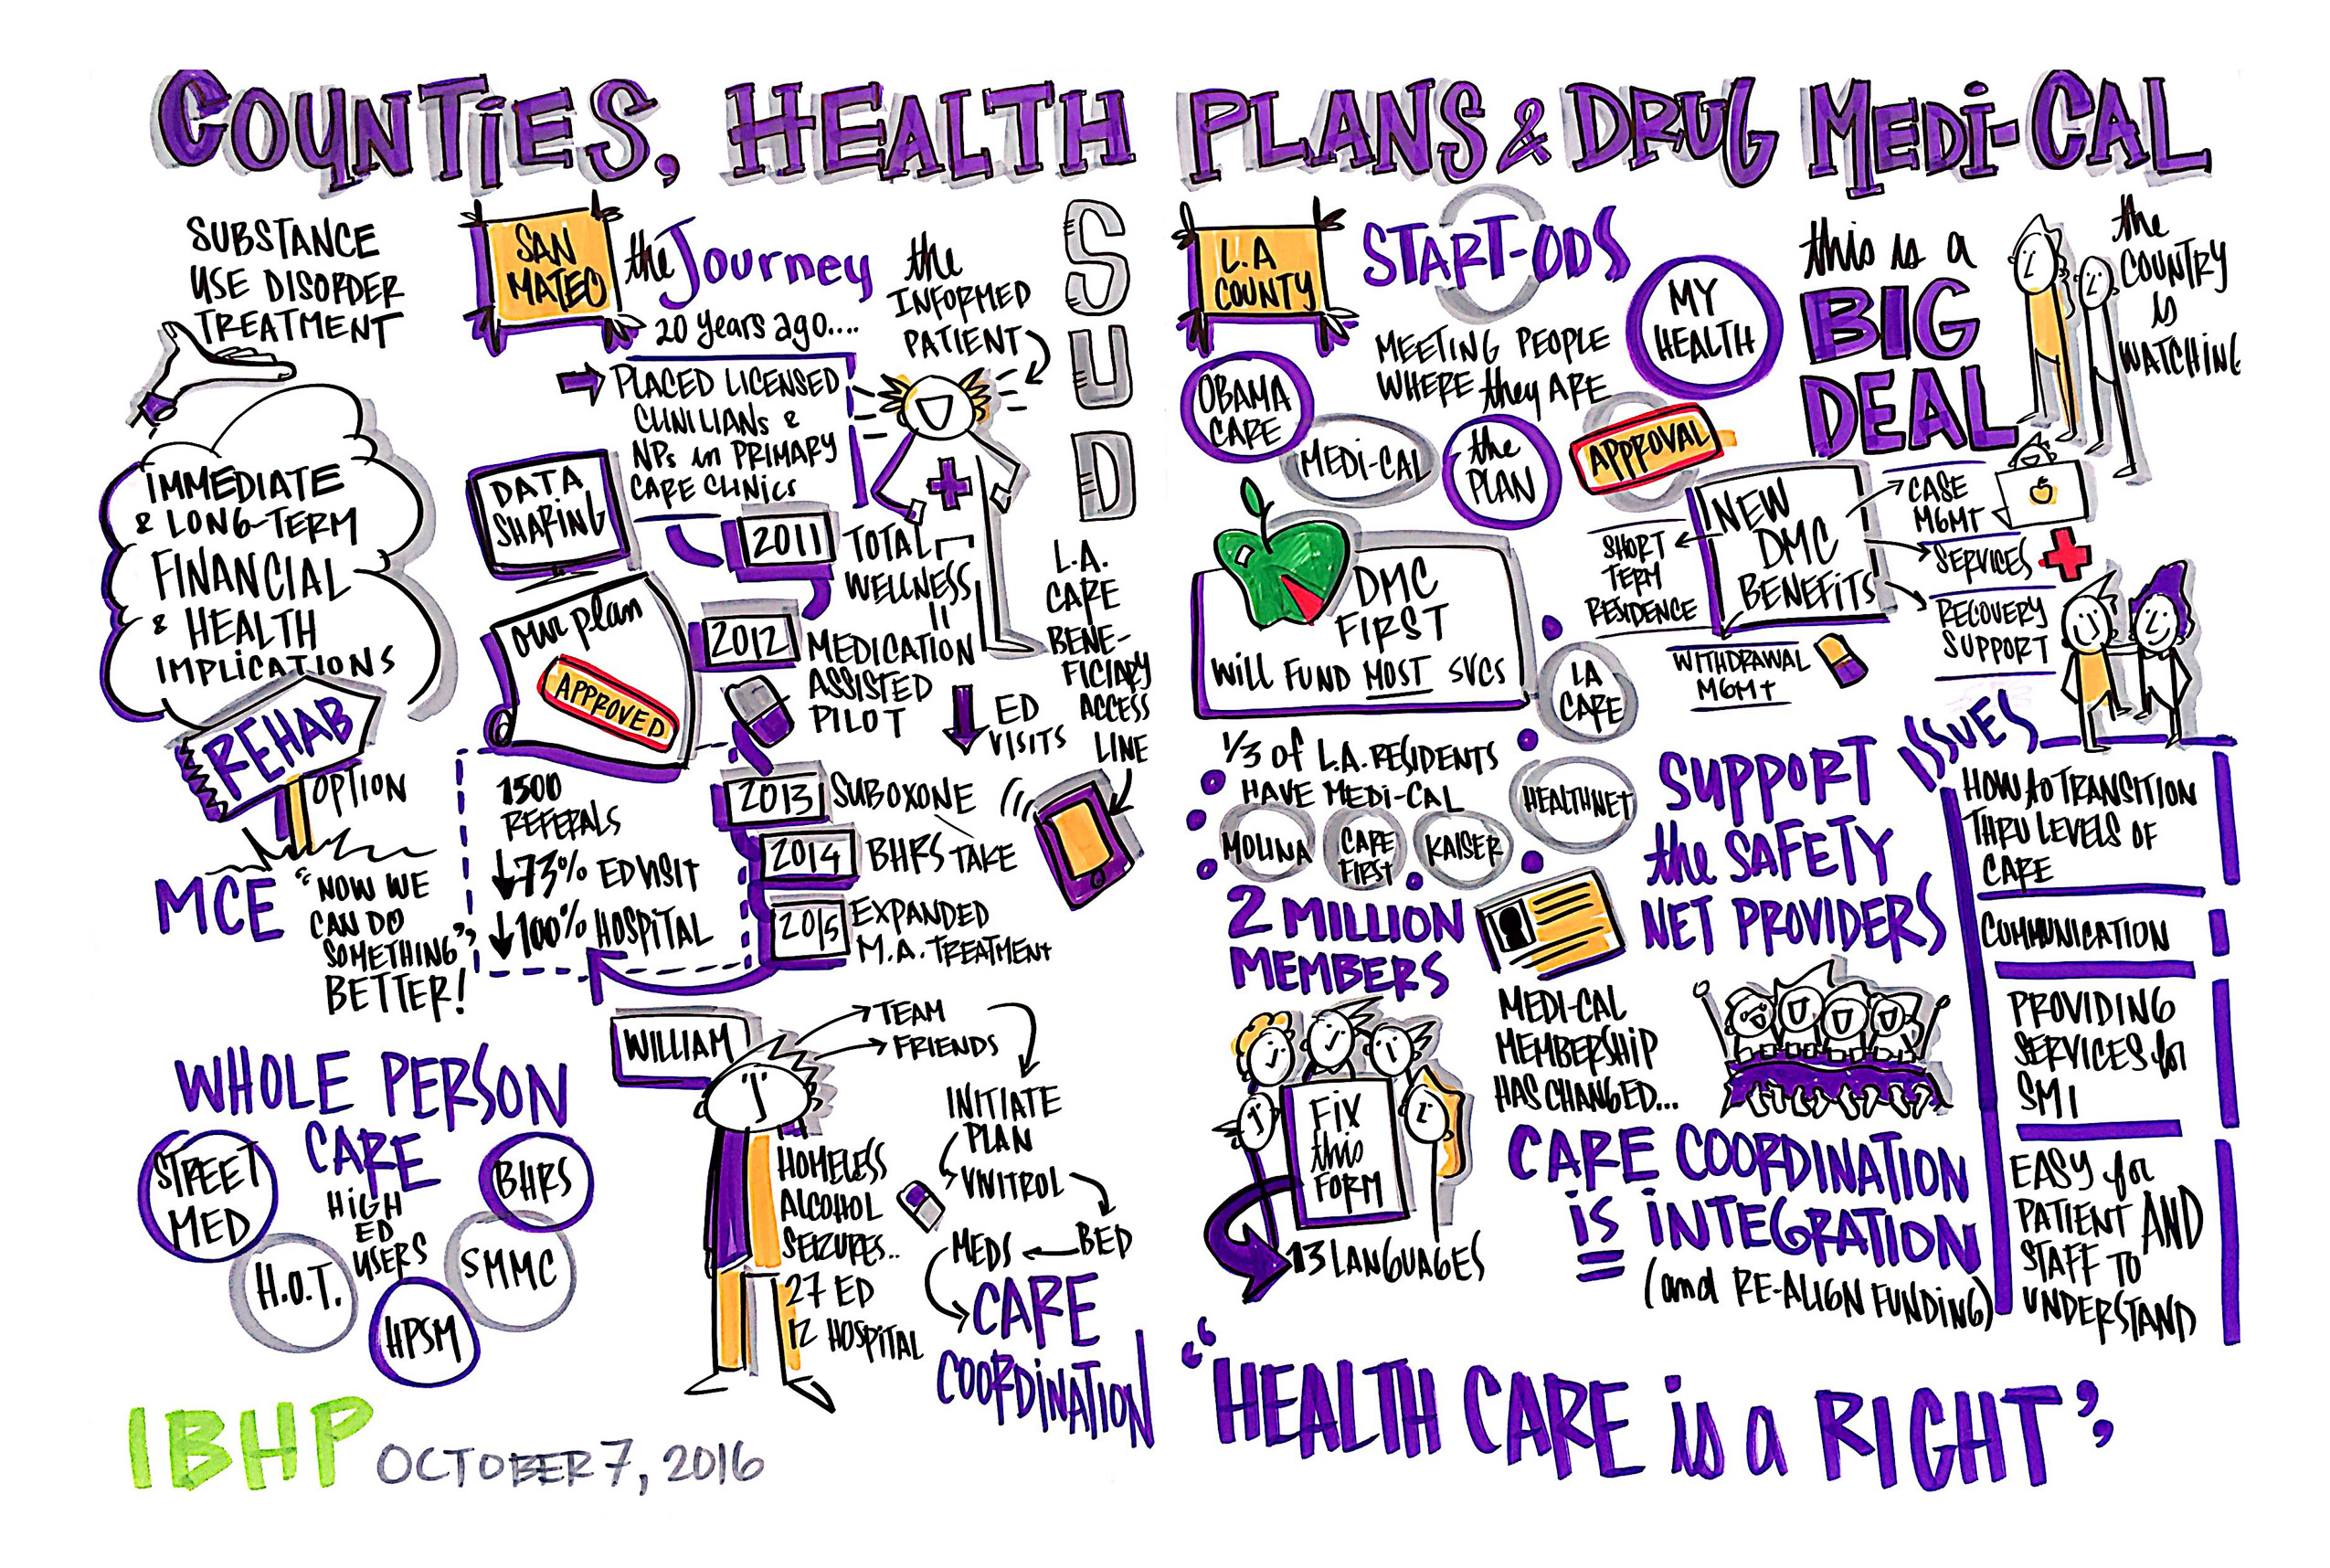 COUNTiES, HEALTH PLANS & DRUG MEDi-CAL
SUBSTANCE
USE DISORDER
TREATMENT
IMMEDIATE
& LONG-TERM
FINANCIAL
& HEALTH
IMPLiCATIONS
REHAB
OPTION
MCE
"NOW WE
CAN DO
SOMETHING"
BETTER!
WHOLE PERSON
CARE
HiGH
ED
USERS
STREET
MED
H.O.T.
HPSM
SMMC
BHRS
SAN
MATEO
the Journey
20 years ago....
PLACED LICENSED
CLINILIANS &
NPs in PRIMARY
CARE CLiNiCS
DATA
SHARiNG
our plan
APPROVED
the
INFORMED
PATIENT
SUD
2011
TOTAL
WELLNESS
2012
MEDICATION
ASSISTED
PILOT
ED
VISITS
2013
SUBOXONE
2014
BHRS TAKE
2015
EXPANDED
M.A. TREATMENT
1500
REFERALS
↓73% ED VISIT
↓100% HOSPiTAL
L.A.
CARE
BENE-
FICIARY
ACCESS
LINE
WILLIAM
TEAM
FRIENDS
INITIATE
PLAN
VIVITROL
BED
MEDS
CARE
COORDiNATION
HOMELESS
ALCOHOL
SEIZURES..
27 ED
12 HOSPiTAL
IBHP
OCTOBER 7, 2016
L.A
COUNTY
START-ODS
MEETING PEOPLE
WHERE they ARE
MY
HEALTH
OBAMA
CARE
MEDI-CAL
the
PLAN
APPROVAL
this is a
BIG
DEAL
the
COUNTRY
is
WATCHING
DMC
FIRST
Will FUND MOST SVCS
NEW
DMC
BENEFiTS
SHORT
TERM
RESIDENCE
WITHDRAWAL
MGMT
CASE
MGMT
SERVICES
RECOVERY
SUPPORT
1/3 of L.A. RESIDENTS
HAVE MEDI-CAL
LA
CARE
HEALTHNET
KAISER
CARE
FIRST
MOLINA
2 MILLION
MEMBERS
MEDI-CAL
MEMBERSHIP
HAS CHANGED...
FiX
this
FORM
13 LANGUAGES
SUPPORT
the SAFETY
NET PROVIDERS
CARE COORDINATION
iS iNTEGRATION
(and RE-ALIGN FUNDING)
ISSUES
HOW to TRANSITION
THRU LEVELS OF
CARE
COMMUNICATION
PROVIDING
SERVICES for
SMI
EASY for
PATIENT AND
STAFF TO
UNDERSTAND
"HEALTH CARE is a RIGHT"